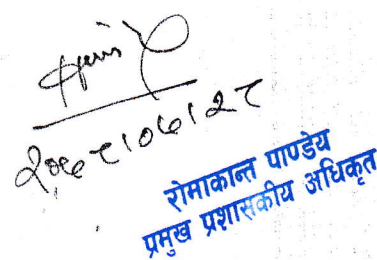 २०७८।०७।२८
रोमाकान्त पाण्डेय
प्रमुख प्रशासकीय अधिकृत